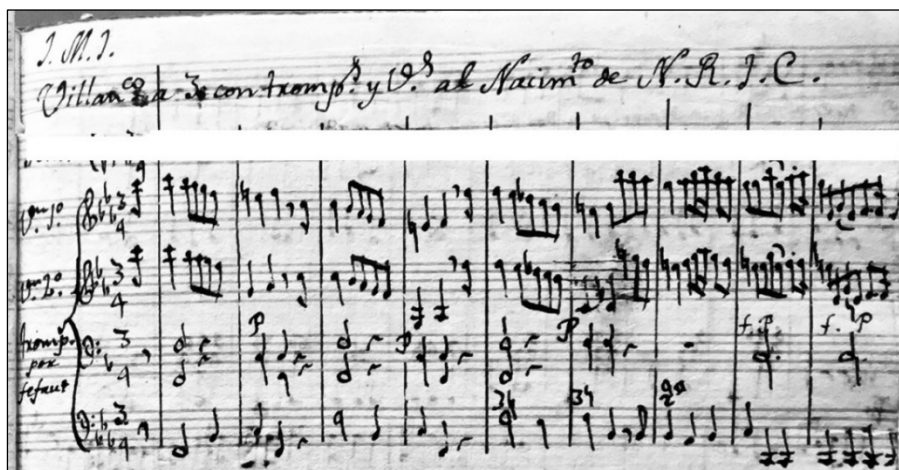 J. M. J.
Villanco a 3 con tromps. y Vs. al Nacimto de N. R. J. C.
Vn. 1o.
3
4
Vn. 2o.
3
4
p
f. p.
f. p
tromps.
por
fefaut
3
4
p
p
3
4